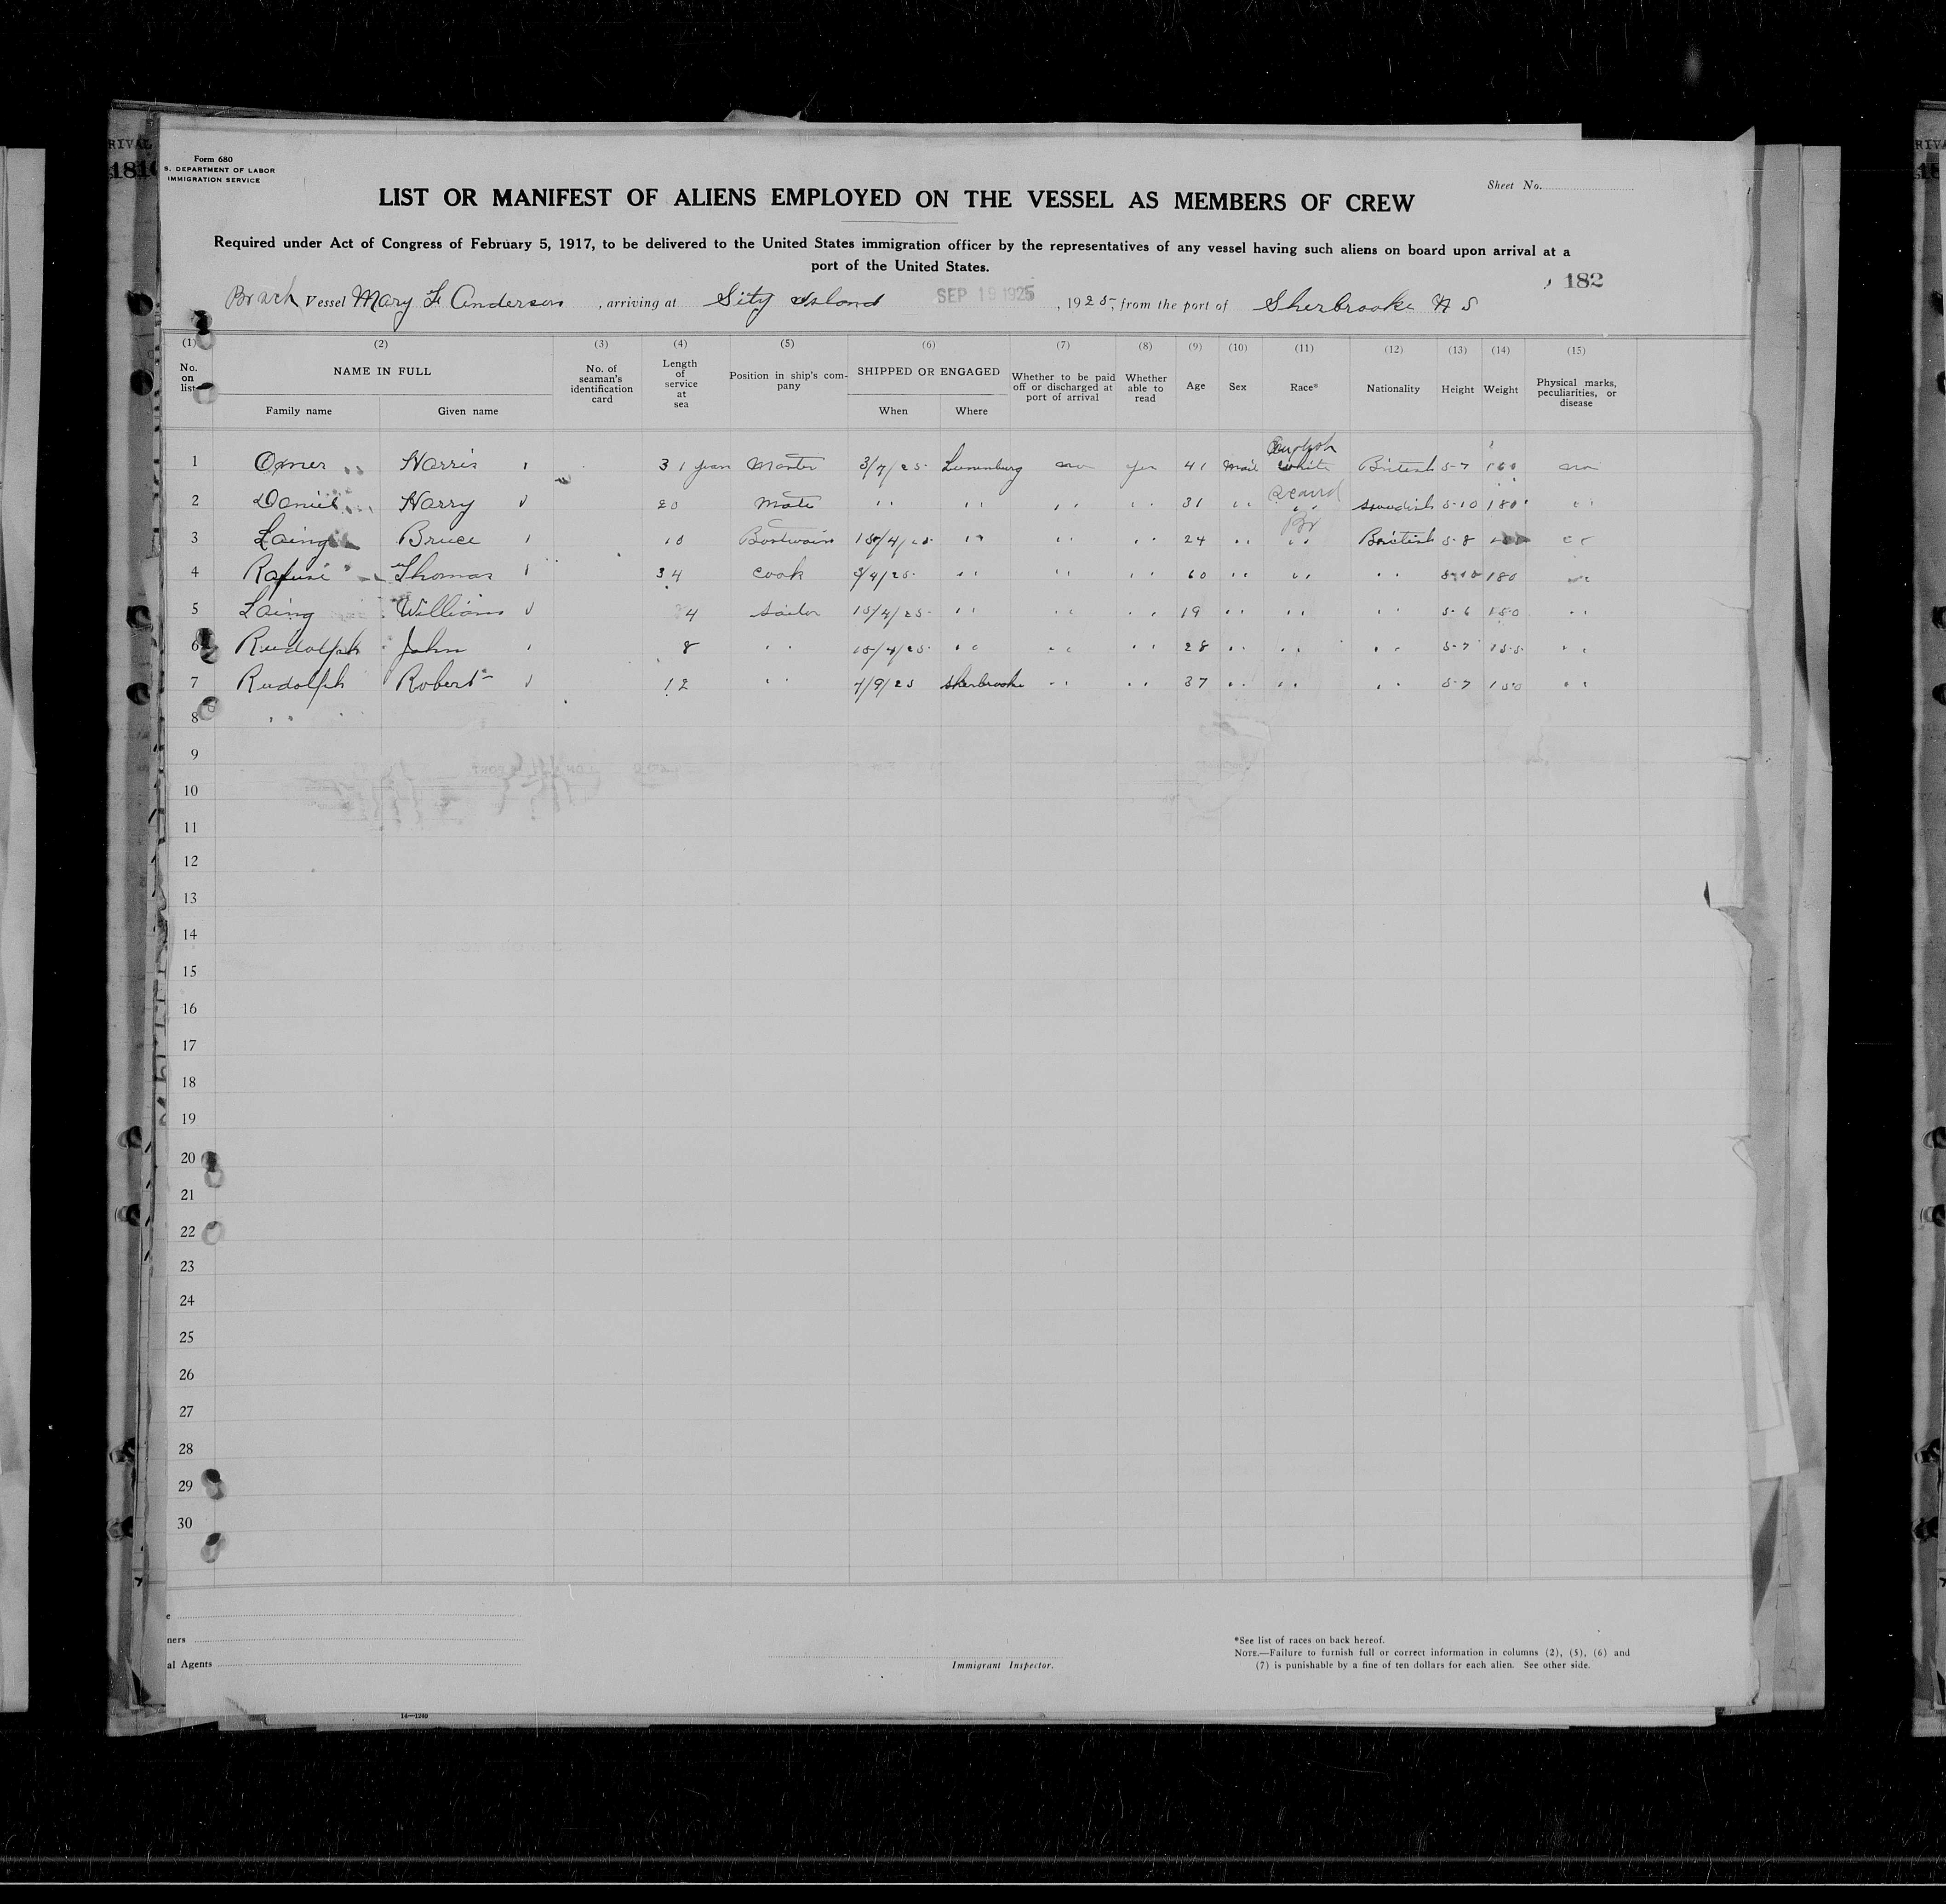 RIVAL
181
Form 680
S. DEPARTMENT OF LABOR
IMMIGRATION SERVICE
Sheet No.
LIST OR MANIFEST OF ALIENS EMPLOYED ON THE VESSEL AS MEMBERS OF CREW
Required under Act of Congress of February 5, 1917, to be delivered to the United States immigration officer by the representatives of any vessel having such aliens on board upon arrival at a
port of the United States.
182
Vessel Mary F Anderson, arriving at Sity Island SEP 19 1925, 1925, from the port of Sherbrooke N S
(1) (2) (3) (4) (5) (6) (7) (8) (9) (10) (11) (12) (13) (14) (15)
No. on list NAME IN FULL Family name Given name No. of seaman's identification card Length of service at sea Position in ship's company SHIPPED OR ENGAGED When Where Whether to be paid off or discharged at port of arrival Whether able to read Age Sex Race* Nationality Height Weight Physical marks, peculiarities, or disease
1 Oxner Harris 31 years Master 3/7/25 Lunenburg no yes 41 Mail English white British 5-7 160 no
2 Daniel Harry 20 Mate " " " " 31 " Scand " swedish 5-10 180 "
3 Laing Bruce 10 Boatswain 15/4/25 " " " 24 " Br " British 5-8 "
4 Rafuse Thomas 34 cook 3/4/25 " " " 60 " " " 5-10 180 "
5 Laing William 4 sailor 15/4/25 " " " 19 " " " 5-6 150 "
6 Rudolph John 8 " 15/4/25 " " " 28 " " " 5-7 155 "
7 Rudolph Robert 12 " 4/9/25 Sherbrooke " " 37 " " " 5-7 150 "
8
9
10
11
12
13
14
15
16
17
18
19
20
21
22
23
24
25
26
27
28
29
30
ners
al Agents
Immigrant Inspector.
*See list of races on back hereof.
NOTE.—Failure to furnish full or correct information in columns (2), (5), (6) and
(7) is punishable by a fine of ten dollars for each alien. See other side.
14—1240